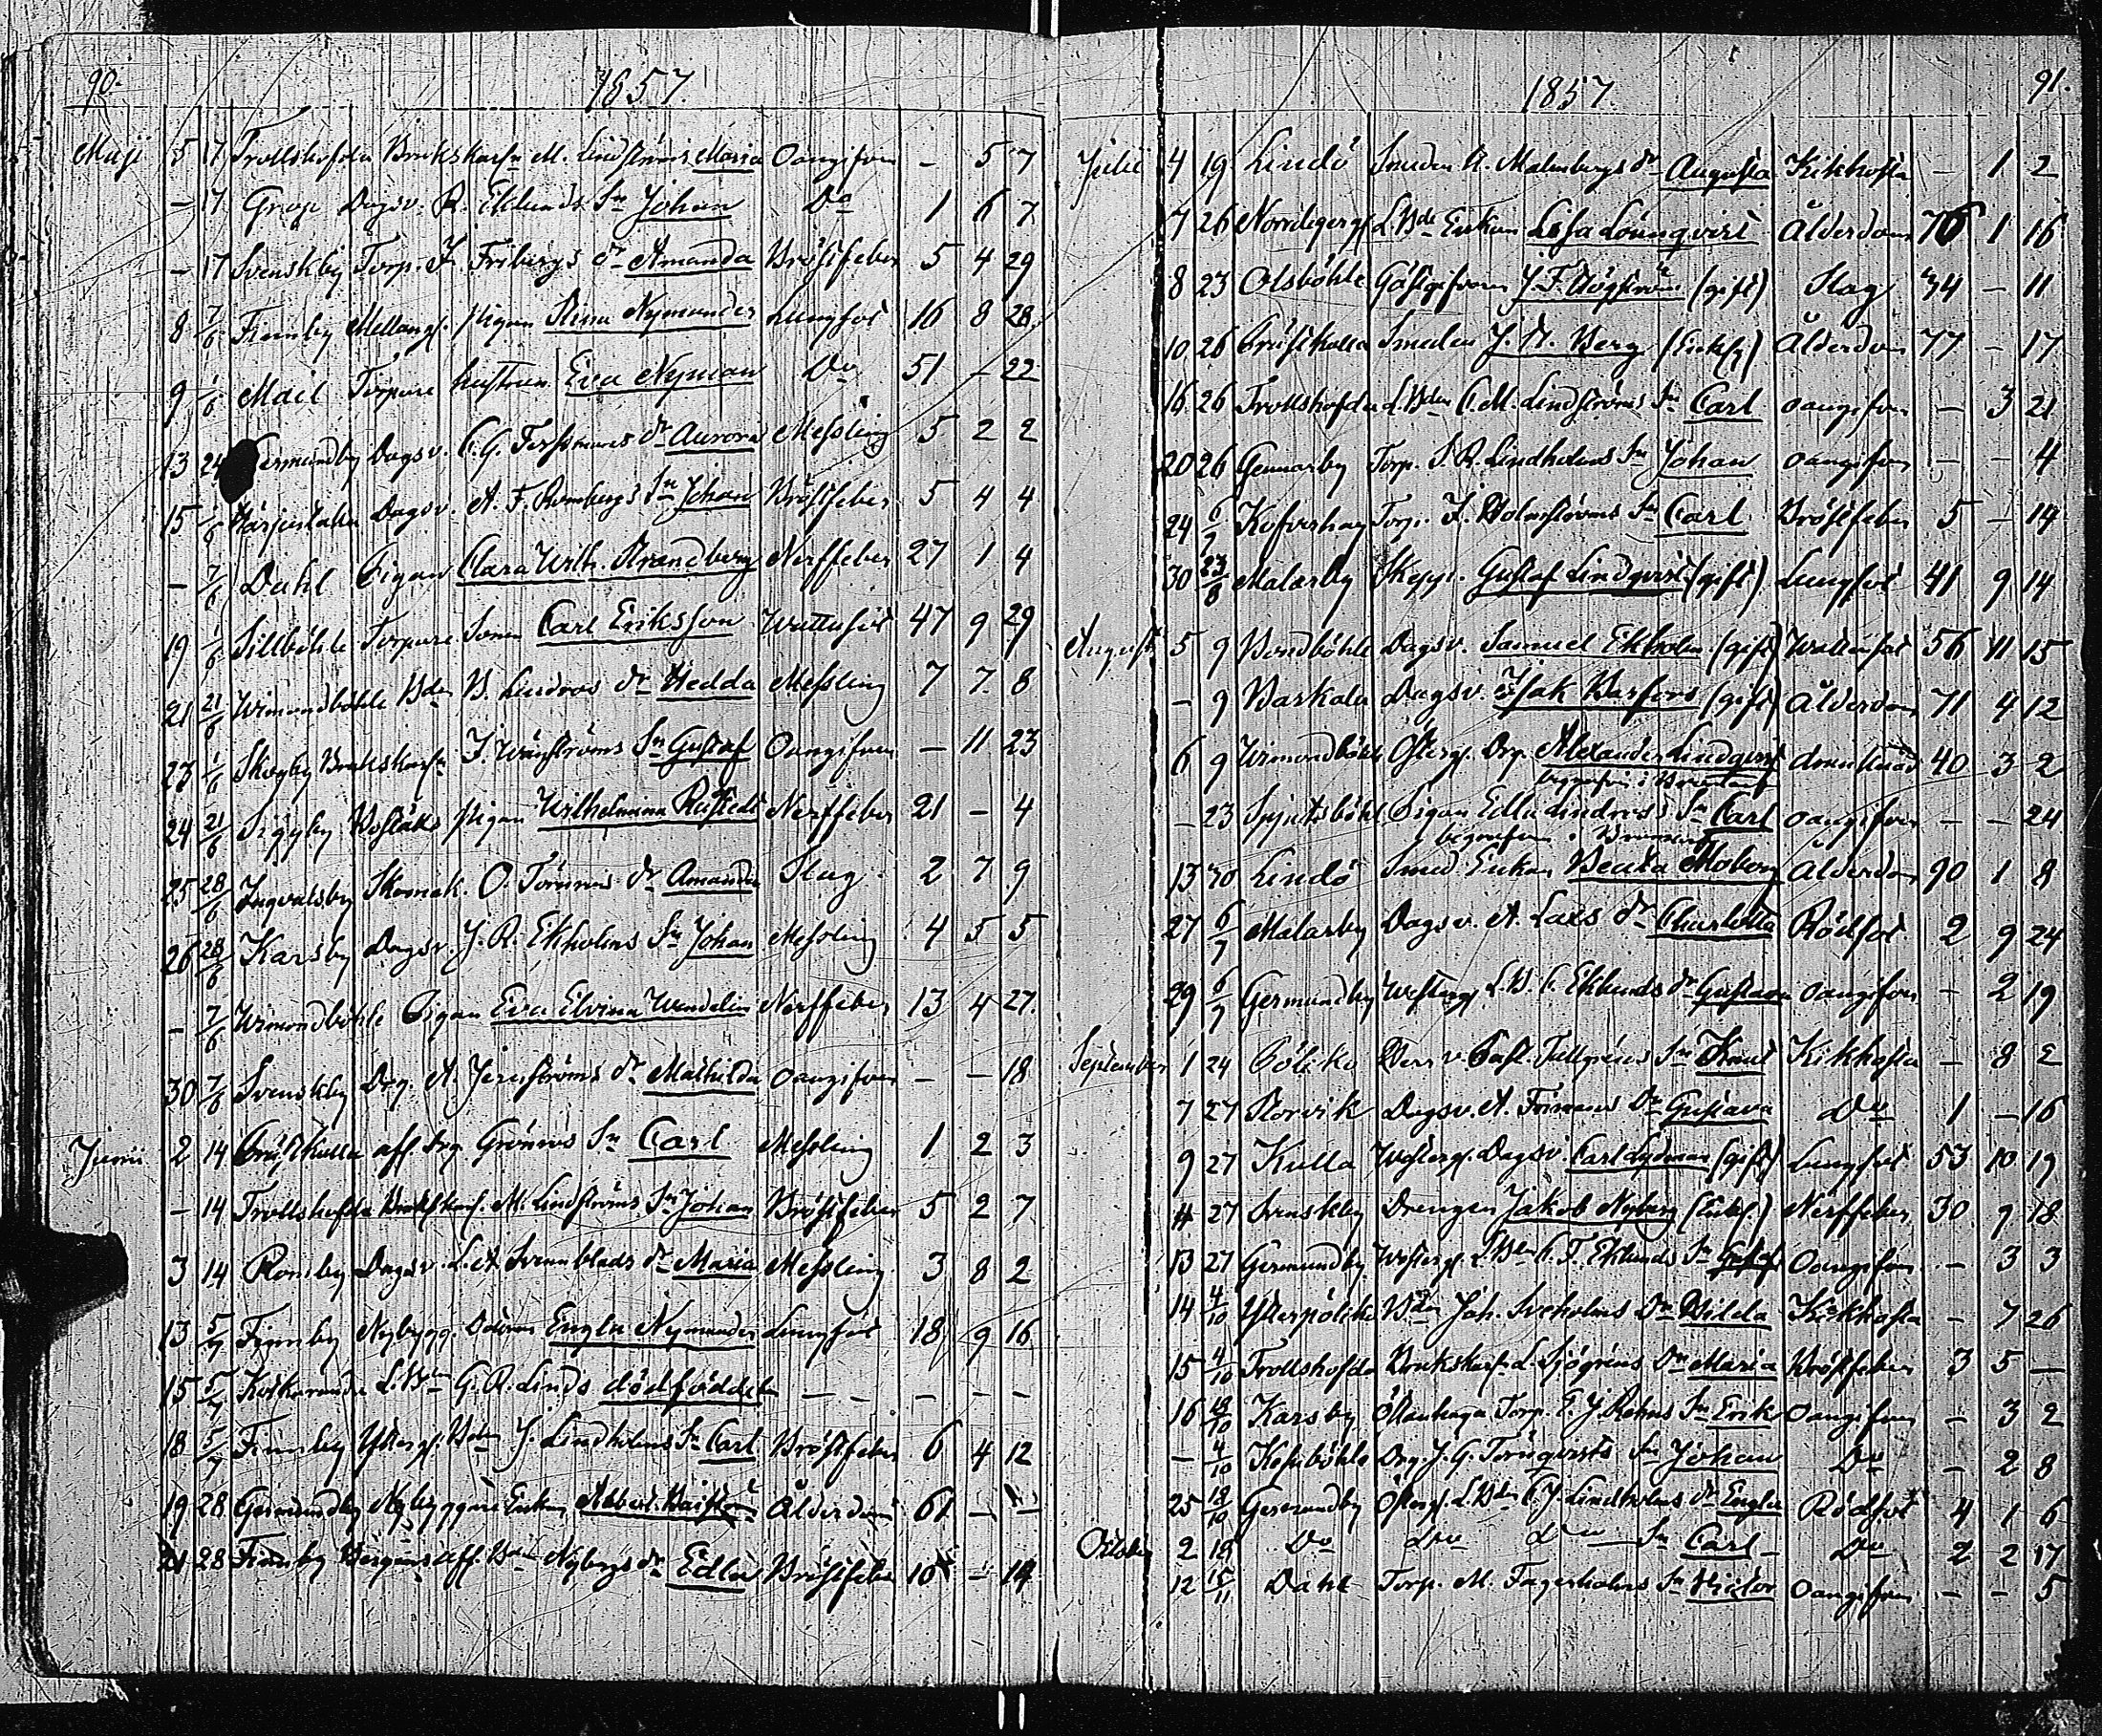 90. 1857.
Maji 5 17 Trollshofda Brukskarln M. Lindströms Maria Oangifven - 5 7
- 17 Grop Dagsv. R. Eklunds Sn Johan Do 1 6 7
- 17 Svenskby Torp. F. Fribergs dr Amanda Bröstfeber 5 4 29
8 7/6 Finnby Mellang. pigan Stina Nymander Lungsot 16 8 28
9 1/6 Mail Torpare hustrun Eva Nyman Do 51 - 22
13 24 Germundby Dagsv. C. G. dr Aurora Messling 5 2 2
15 1/6 Dagsv. A. F. Rombergs Sn Johan Bröstfeber 5 4 4
- 7/6 Dahl Pigan Clara Wilh. Strandberg Nerffeber 27 1 4
19 1/6 Sillböhle Torpare Sonen Carl Eriksson Wattusot 47 9 29
21 21/6 Wimondböhle Bdn B. Lindroos dr Hedda Messling 7 7 8
23 1/6 Skogby Brukskarln J. Sn Gustaf Oangifven - 11 23
24 21/6 Siggby pigan Wilhelmina Nerffeber 21 - 4
25 28/6 Ingvalsby Skomak. O. dr Amanda Slag 2 7 9
26 28/6 Karsby Dagsv. J. R. Ekholms Sn Johan Messling 4 5 5
- 7/6 Wimondböhle Pigan Eva Elvina Wendelin Nerffeber 13 4 27.
30 7/6 Svenskby Drg. A. Jernströms dr Mathilda Oangifven - - 18
Junii 2 14 aff. drg. Grönroos Sn Carl Messling 1 2 3
- 14 Trollshofda Brukskarl. M. Lindströms Sn Johan Bröstfeber 5 2 7
3 14 Romby Dagsv. L. A. Svennblads dr Maria Messling 3 8 2
13 5/7 Finnby Nybygg. Dotern Engla Nymander Lungsot 18 9 16
15 5/7 L.Bdn G. R. Linds dödföddeln - - - -
18 5/7 Finnby Ysterg. Bdn J. Lindholms Sn Carl Bröstfeber 6 4 12
19 28 Germundby Nybyggare Enkan Ålderdom 61 - -
21 28 Finnby aff. Bdn Nybergs dr Edla Bröstfeber 10 - 14
1857 91.
Julii 4 19 Lindö Smeden A. Malmbergs dr Augusta Kikhosta - 1 2
7 26 L.Bds Enkan Lisa Lönnqvist Ålderdom 76 1 16
8 23 Olsböhle Gästgifvaren J. F. Högström (gift) Slag 34 - 11
10 26 Smeden J. A. Berg (Enkl.) Ålderdom 77 - 17
16 26 Trollshofda L.Bdn C. M. Lindströms Sn Carl Oangifven - 3 21
20 26 Gennarby Torp. S. R. Lindholms Sn Johan Oangifven - - 4
24 6/9 Kofverhag Torp. F. Holmströms Sn Carl Bröstfeber 5 - 14
30 23/8 Malarby Skepp. Gustaf Lindqvist (gift) Lungsot 41 9 14
August 5 9 Bondböhle Dagsv. Samuel Ekholm (gift) Wattusot 56 11 15
- 9 Baskala Dagsv. Isak Barfors (gift) Ålderdom 71 4 12
6 9 Wimondböhle Österg. Drg. Alexander Lindqvist drunknad 40 3 2
- 23 Spjutsböhle Pigan Edla Lindroos Sn Carl Oangifven - - 24
begrafven i Bromarf
13 30 Lindö Smed. Enkan Beata Moberg Ålderdom 90 1 8
27 6/9 Malarby Dagsv. A. Laxs dr Charlotta Rödsot 2 9 24
29 6/9 Germundby Westerg. L.B. C. Eklunds dr Gustava Oangifven - 2 19
September 1 24 Pölko Tallgréns Sn Knut Kikhosta - 8 2
7 27 Rorvik Dagsv. A. dr Gustava Do 1 - 16
9 27 Kulla Westerg. Dagsv. Carl Lydman (gift) Lungsot 53 10 19
11 27 Svenskby Drengen Jakob Nyberg (Enkl.) Nerffeber 30 9 18
13 27 Germundby Westerg. L.Bdn C. F. Eklunds Sn Gustaf Oangifven - 3 3
14 4/10 Ysterpölko Bdn Joh. Sveholms Dr Hilda Kikhosta - 7 26
15 4/10 Trollshofda Brukskarl. L. Sjögréns Dr Maria Bröstfeber 3 5 -
16 18/10 Karsby Östanhaga Torp. E. J. Sn Erik Oangifven - 3 2
- 4/10 Drg. J. G. Törnqvists Sn Johan Do - 2 8
25 18/10 Germundby Österg. L.Bdn C. J. Lindholms dr Engla Rödsot 4 1 6
October 2 18 Do do do Sn Carl Do 2 2 17
12 15/11 Dahl Torp. M. Fagerholms Sn Victor Oangifven - - 5